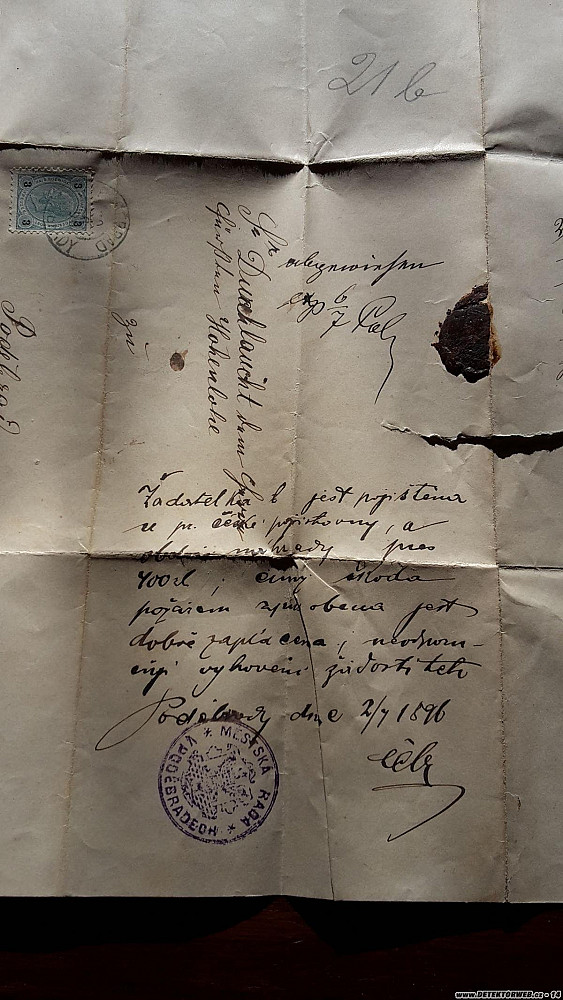 21 b
3 3
Sr
Durchlaucht dem
Fürsten Hohenlohe
zu
Poděbrad
abgewiesen
exp 6/7
Žadatelka jest pojištěna
u pr. české pojišťovny, a
obdrží náhrady přes
400 zl; škoda
požárem způsobená jest
dobře zaplacena; neodporu-
čuji vyhovění žádosti této
Poděbrady dne 2/7 1896
* MĚSTSKÁ RADA * V PODĚBRADECH
www.DETEKTORWEB.cz - 14